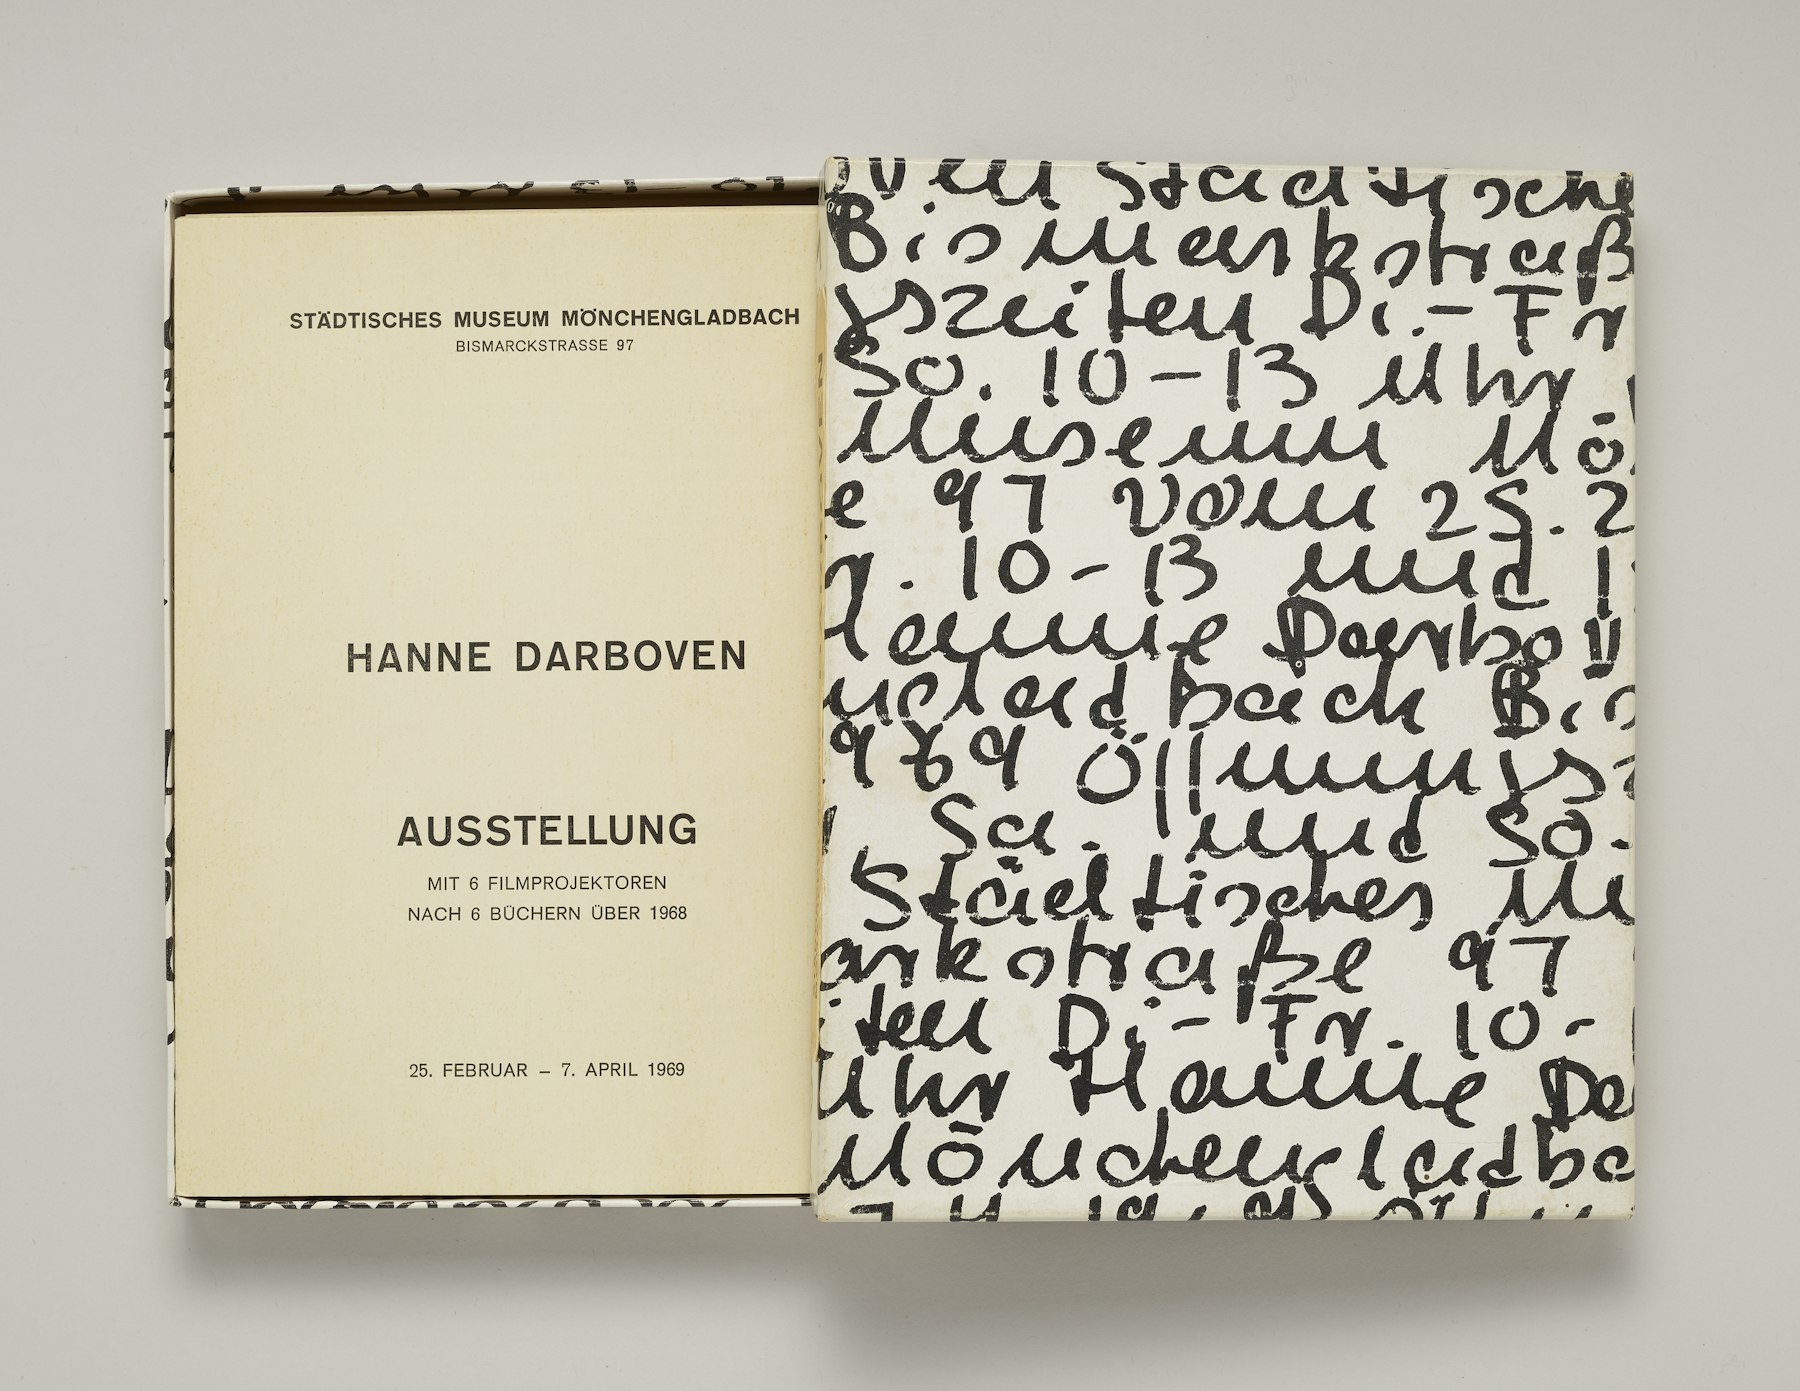 STÄDTISCHES MUSEUM MÖNCHENGLADBACH
BISMARCKSTRASSE 97
HANNE DARBOVEN
AUSSTELLUNG
MIT 6 FILMPROJEKTOREN
NACH 6 BÜCHERN ÜBER 1968
25. FEBRUAR – 7. APRIL 1969
ven Städtische
Bismarkstraß
gszeiten Di.- Fr
So. 10-13 Uhr
Museum Mö
e 97 vom 25. 2
r. 10-13 und 1
Hanne Darbov
ngladbach Bis
969 Öffnungsz
Sa. und So.
Städtisches Mu
arkstraße 97
iten Di- Fr. 10-
Uhr Hanne Da
Mönchengladba